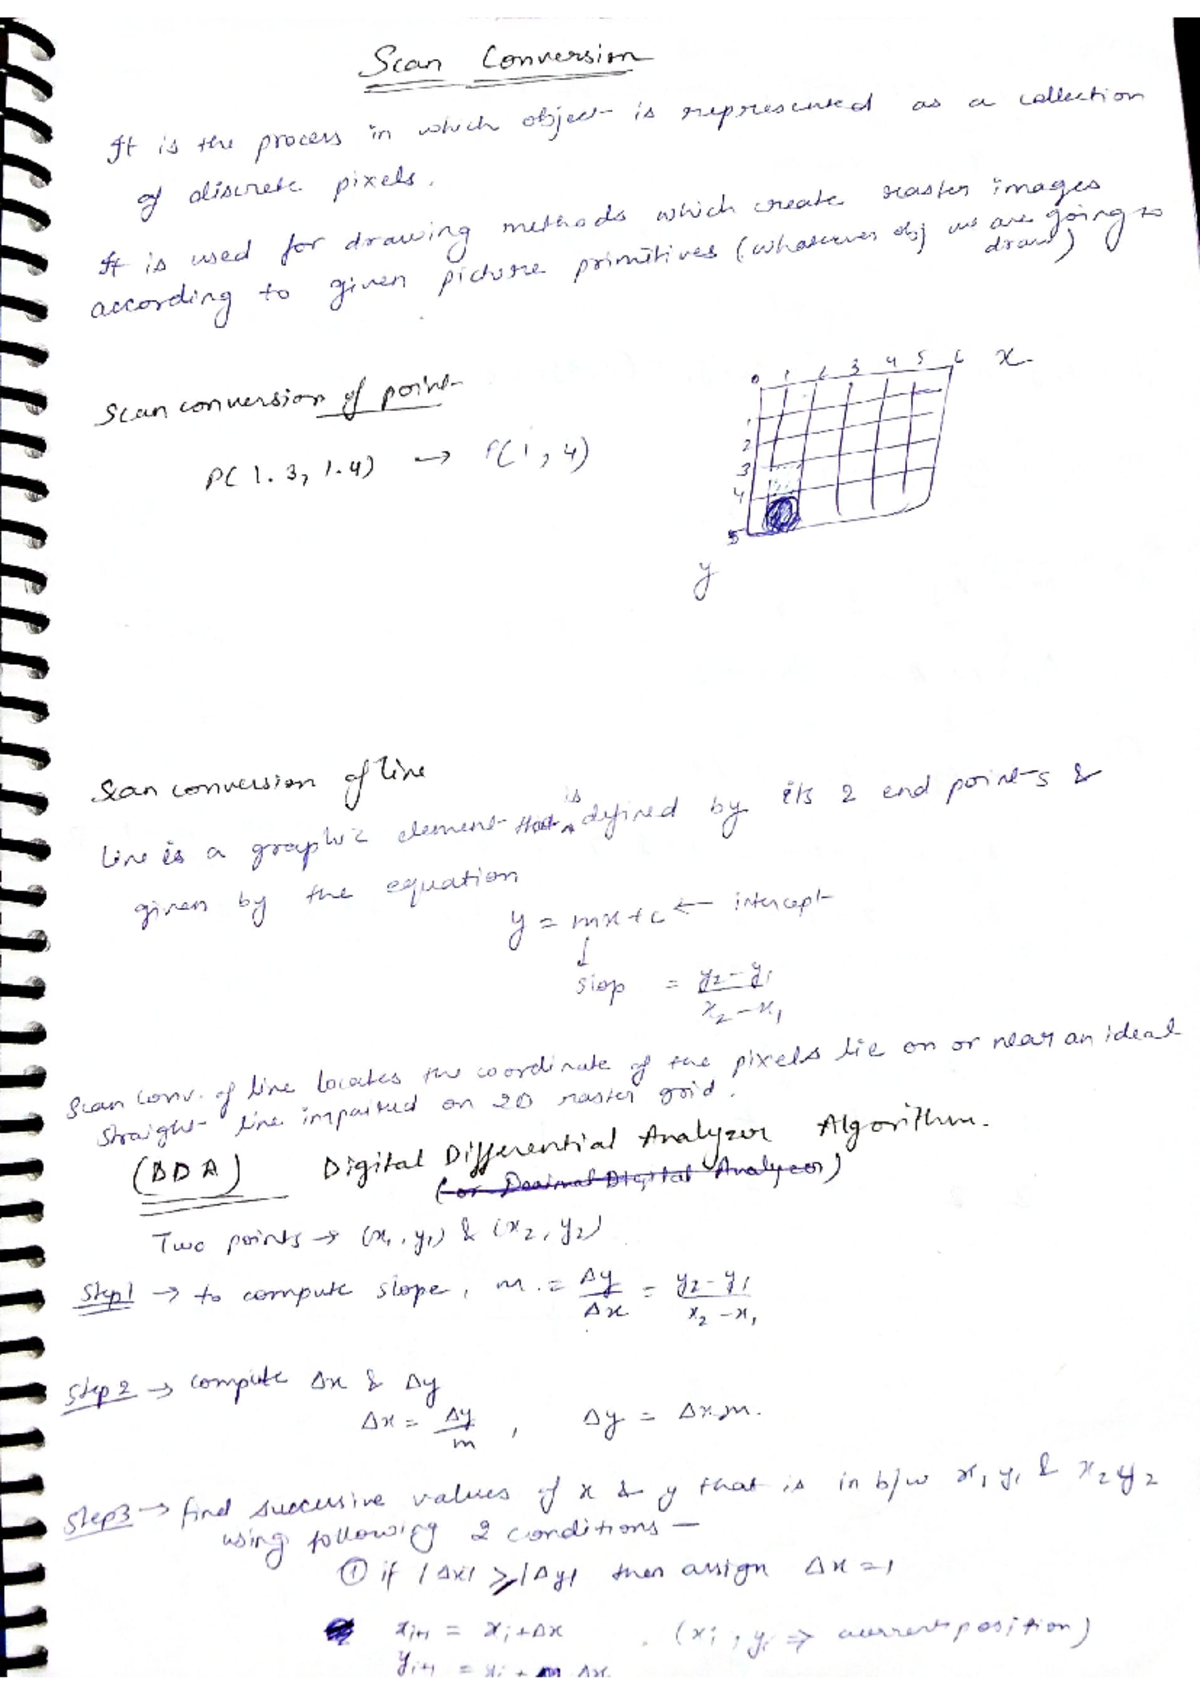 Scan Conversion
It is the process in which object is represented as a collection
of discrete pixels.
It is used for drawing methods which create raster images
according to given picture primitives (whatever obj we are going to
draw)
0 1 2 3 4 5 6 x
1
2
3
4
5
y
Scan conversion of point
P( 1.3, 1.4) → P(1, 4)
Scan conversion of line
Line is a graphic element that is defined by its 2 end points &
given by the equation
y = mx + c ← intercept
↓
slop = y2 - y1 / x2 - x1
Scan conv. of line locates the coordinate of the pixels lie on or near an ideal
straight line impaited on 2D raster grid.
(DDA) Digital Differential Analyzer Algorithm.
(or Decimal Digital Analyzer)
Two points → (x1, y1) & (x2, y2)
Step1 → to compute slope, m = Δy / Δx = y2 - y1 / x2 - x1
Step 2 → compute Δx & Δy
Δx = Δy / m , Δy = Δx.m.
Step3 → find successive values of x & y that is in b/w x1 y1 & x2 y2
using following 2 conditions —
① if |Δx| ≥ |Δy| then assign Δx = 1
xi+1 = xi + Δx . (xi, yi ⇒ current position)
yi+1 = yi + m Δx.